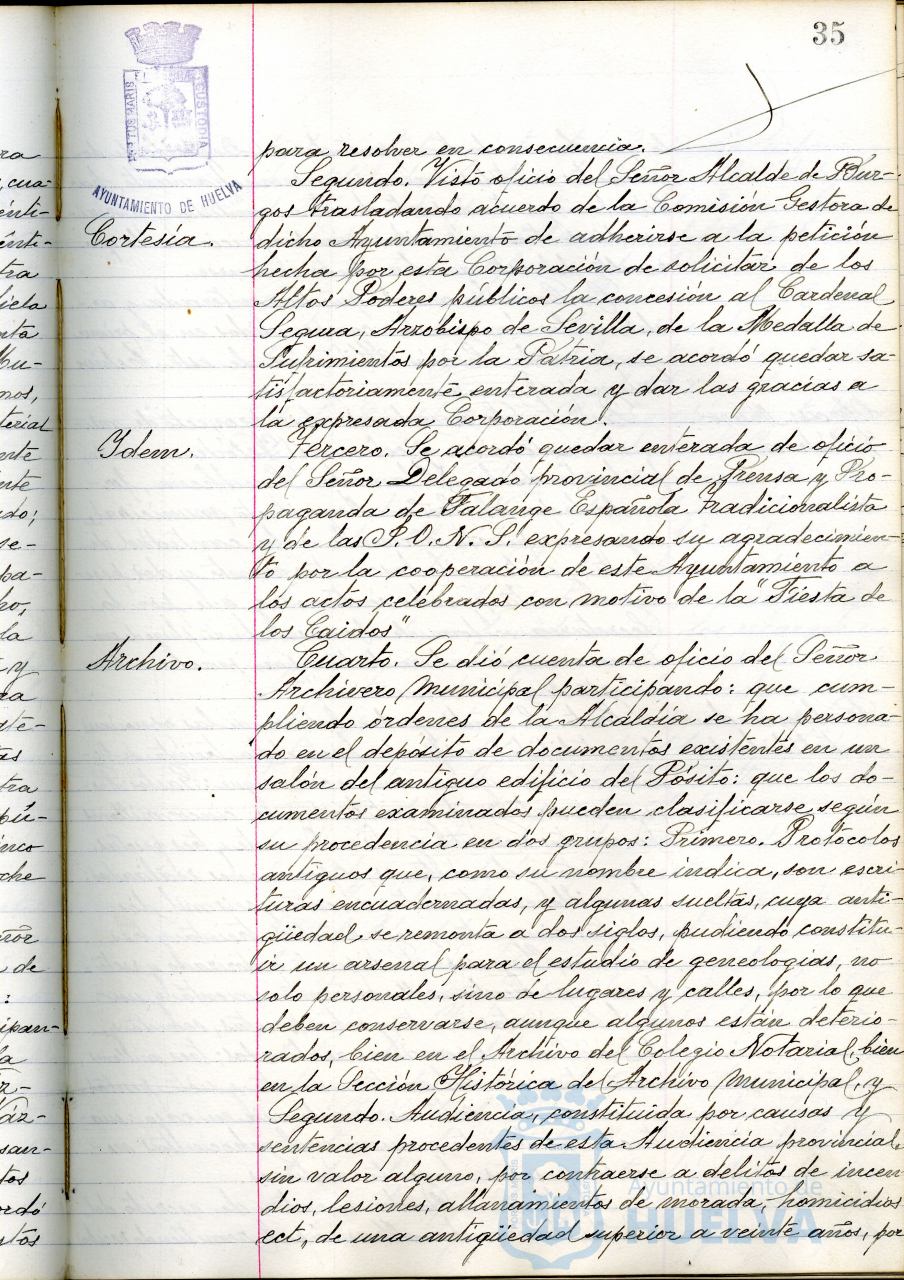 35
PORTUS MARIS ET TERRAE CUSTODIA
AYUNTAMIENTO DE HUELVA
para resolver en consecuencia.
Segundo. Visto oficio del Señor Alcalde de Bur-
gos trasladando acuerdo de la Comisión Gestora de
Cortesía.
dicho Ayuntamiento de adherirse a la petición
hecha por esta Corporación de solicitar de los
Altos Poderes públicos la concesión al Cardenal
Segura, Arzobispo de Sevilla, de la Medalla de
Sufrimientos por la Patria, se acordó quedar sa-
tisfactoriamente enterada y dar las gracias a
la expresada Corporación.
Ydem.
Tercero. Se acordó quedar enterada de oficio
del Señor Delegado provincial de Prensa y Pro-
paganda de Falange Española Tradicionalista
y de las J.O.N.S. expresando su agradecimien-
to por la cooperación de este Ayuntamiento a
los actos celebrados con motivo de la "Fiesta de
los Caidos"
Archivo.
Cuarto. Se dió cuenta de oficio del Señor
Archivero Municipal participando: que cum-
pliendo órdenes de la Alcaldía se ha persona-
do en el depósito de documentos existentes en un
salón del antiguo edificio del Pósito: que los do-
cumentos examinados pueden clasificarse según
su procedencia en dos grupos: Primero. Protocolos
antiguos que, como su nombre indica, son escri-
turas encuadernadas, y algunas sueltas, cuya anti-
güedad se remonta a dos siglos, pudiendo constitu-
ir un arsenal para el estudio de geneologias, no
solo personales, sino de lugares y calles, por lo que
deben conservarse, aunque algunos están deterio-
rados, bien en el Archivo del Colegio Notarial, bien
en la Sección Histórica del Archivo Municipal, y
Segundo. Audiencia, constituida por causas y
sentencias procedentes de esta Audiencia provincial,
sin valor alguno, por contraerse a delitos de incen-
dios, lesiones, allanamientos de morada, homicidios
ect, de una antigüedad superior a veinte años, por
Ayuntamiento de
HUELVA